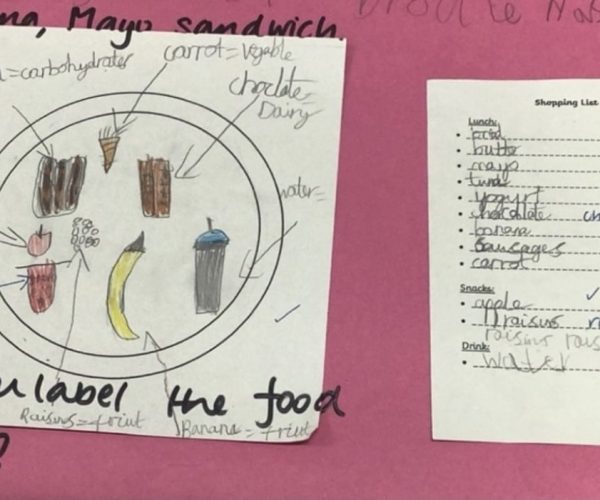 Mayo sandwich
=carbohydrates
carrot=Vgable
choclate=
Dairy
water=
label the food
Raisins=friut
Banana=friut
?
Shopping List
Lunch:
butte
mayo
tuna
yogurt
chocolate
banana
Sausages
carrot
Snacks:
apple
raisins
raisins
Drink:
water